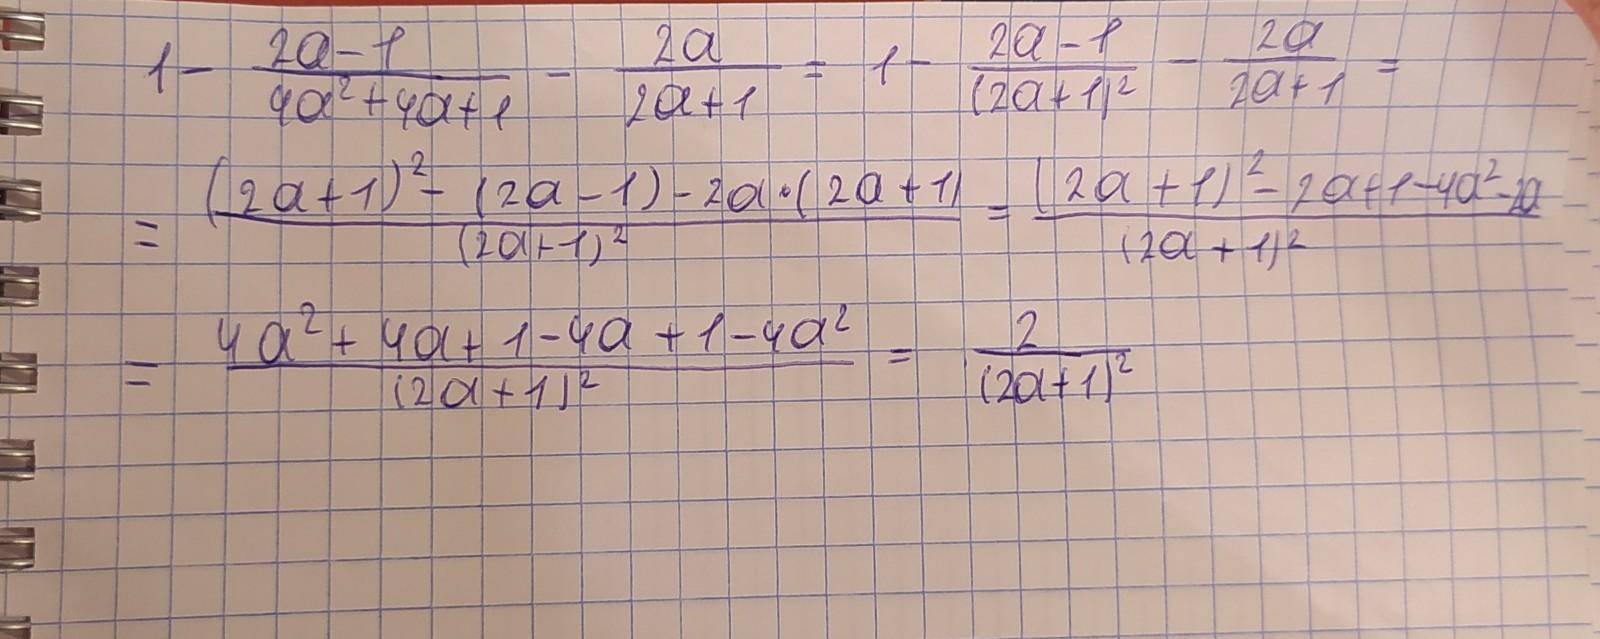 1 - (2a-1)/(4a²+4a+1) - 2a/(2a+1) = 1 - (2a-1)/(2a+1)² - 2a/(2a+1) =
= ((2a+1)² - (2a-1) - 2a·(2a+1))/(2a+1)² = ((2a+1)² - 2a+1-4a²-2a)/(2a+1)²
= (4a²+4a+1-4a+1-4a²)/(2a+1)² = 2/(2a+1)²